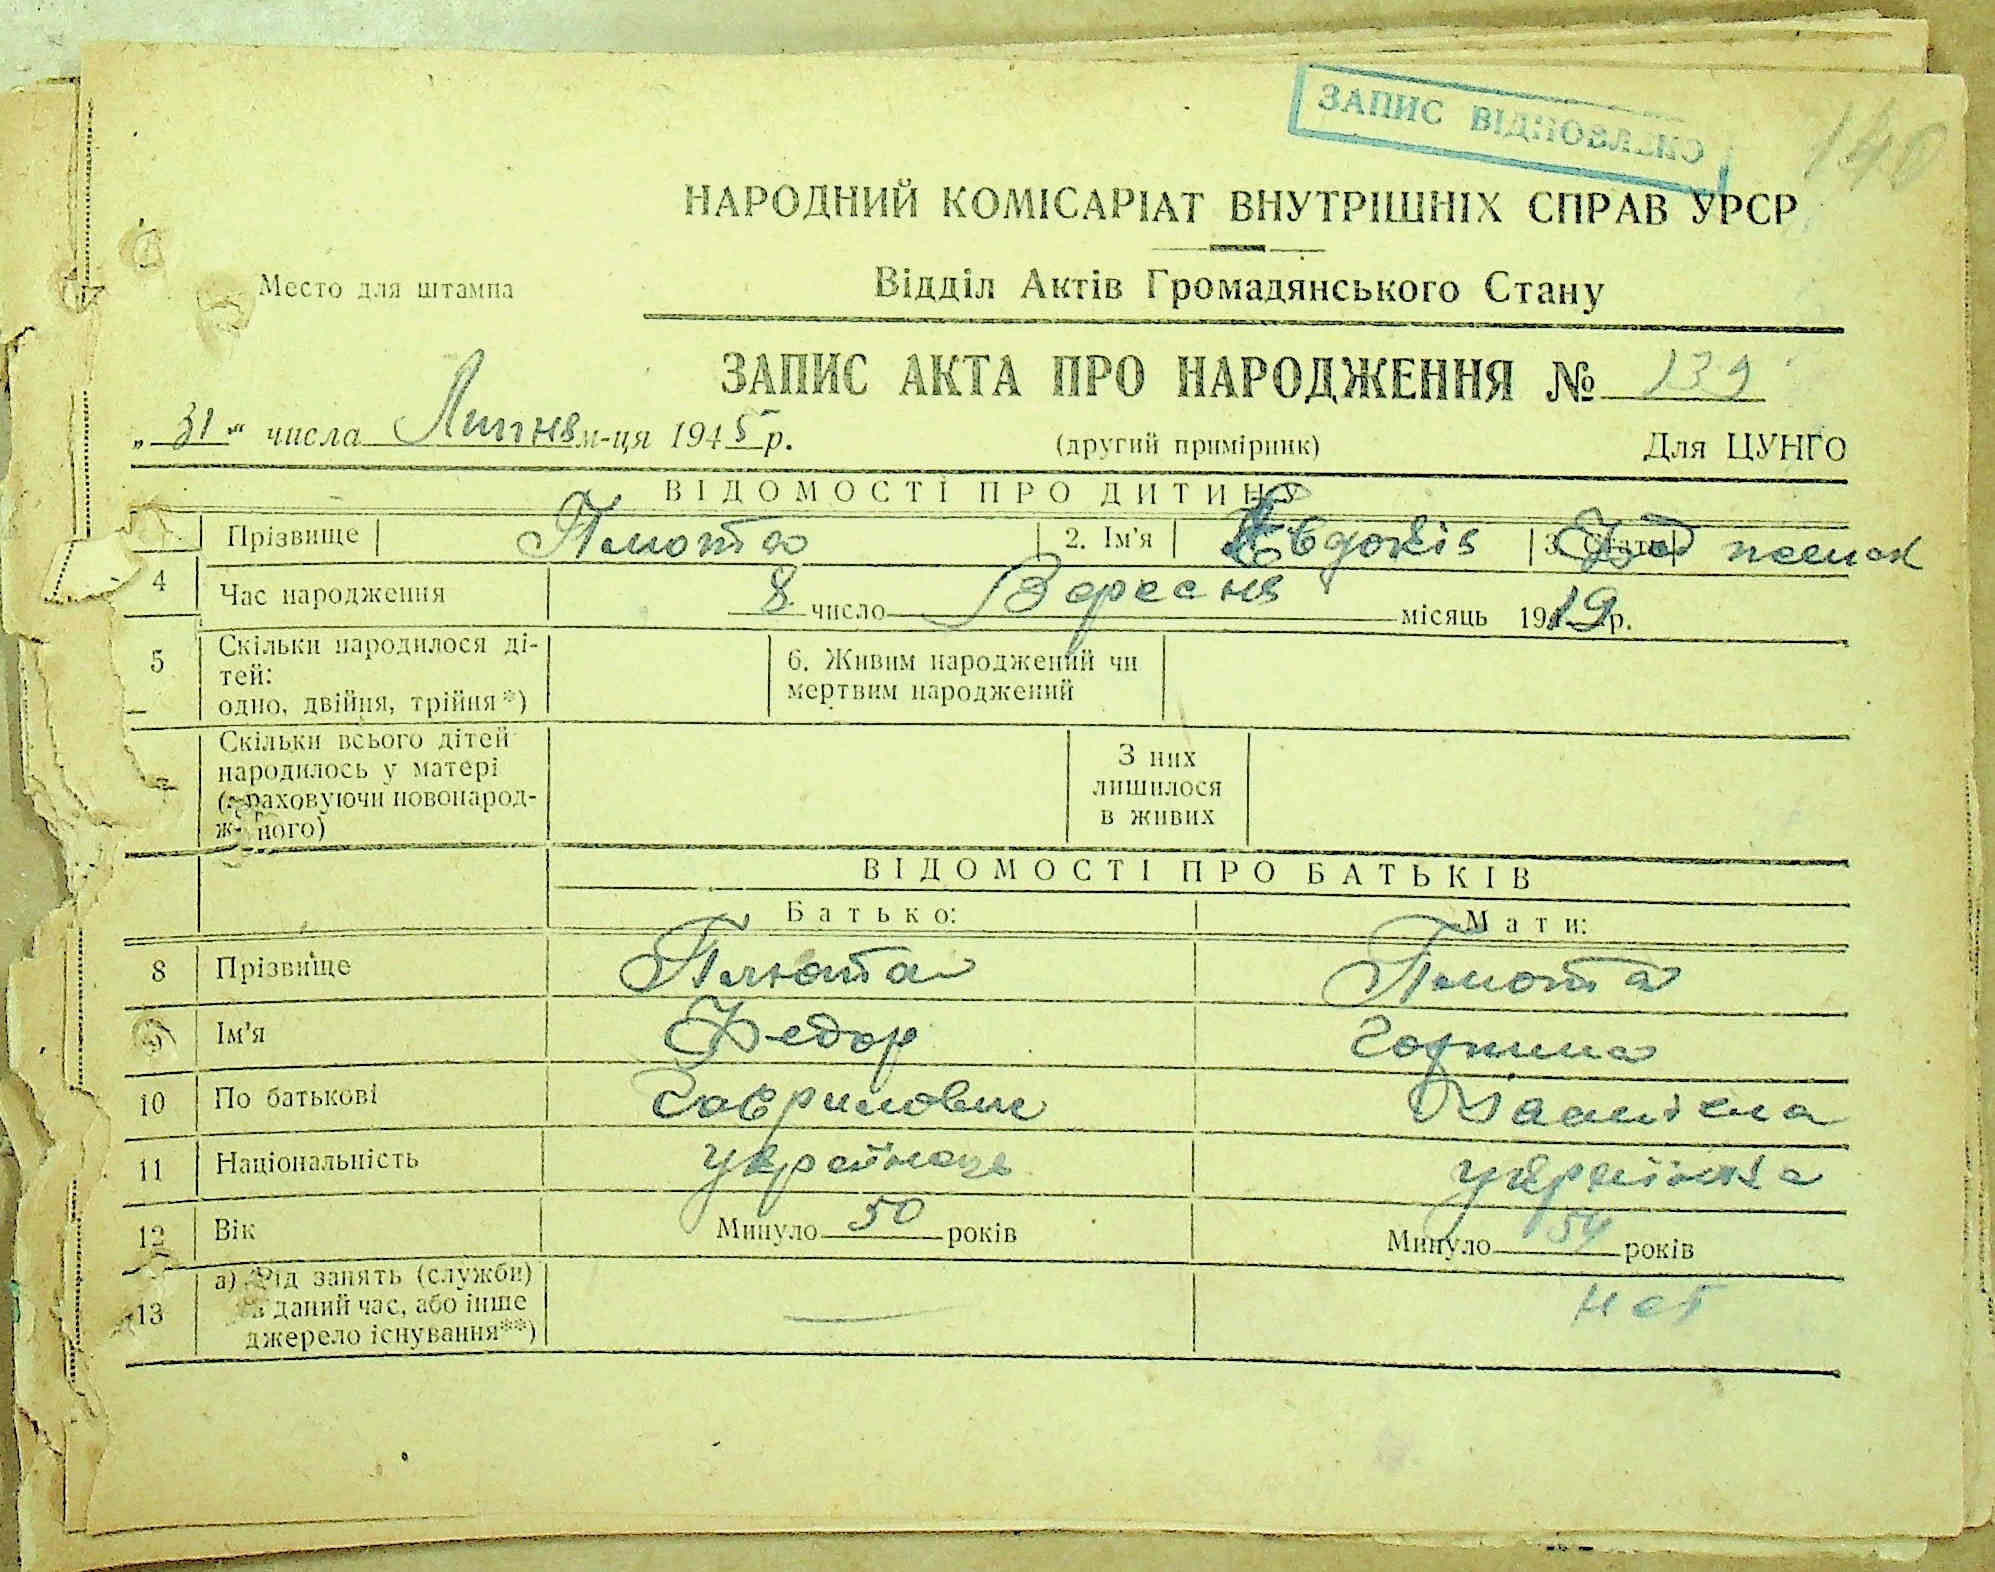 ЗАПИС ВІДНОВЛЕНО
140
НАРОДНИЙ КОМІСАРІАТ ВНУТРІШНІХ СПРАВ УРСР
Место для штампа
Відділ Актів Громадянського Стану
ЗАПИС АКТА ПРО НАРОДЖЕННЯ № 139
„31“ числа Липня м-ця 1945 р. (другий примірник) Для ЦУНГО
ВІДОМОСТІ ПРО ДИТИНУ
Прізвище Плюта 2. Ім'я Евдокія 3. Стать
4 Час народження 8 число Вересня місяць 1919 р.
5 Скільки народилося ді-
тей:
одно, двійня, трійня*)
6. Живим народжений чи
мертвим народжений
Скільки всього дітей
народилось у матері
(враховуючи новонарод-
ж ного)
З них
лишилося
в живих
ВІДОМОСТІ ПРО БАТЬКІВ
Батько: Мати:
8 Прізвище Плюта Плюта
9 Ім'я Федор Горпина
10 По батькові Гаврилович
11 Національність українець українка
12 Вік Минуло 50 років Минуло 54 років
13 а) Рід занять (служби)
в даний час, або інше
джерело існування**)
нет